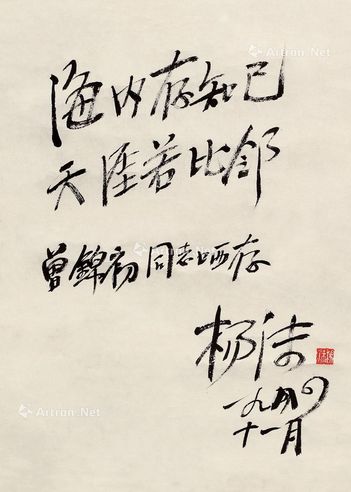 Artron.Net
海内存知己
天涯若比邻
曾錦初同志哂存
杨沫
一九
十一月
Artron.Net